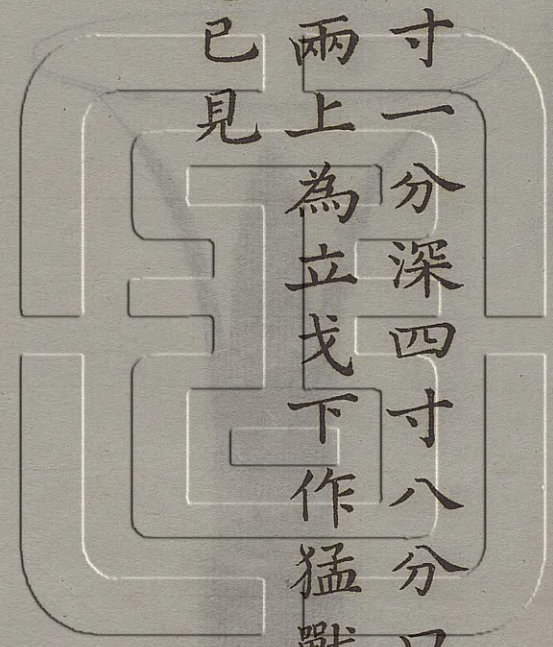 寸一分深四寸八分口
兩上為立戈下作猛獸
已見